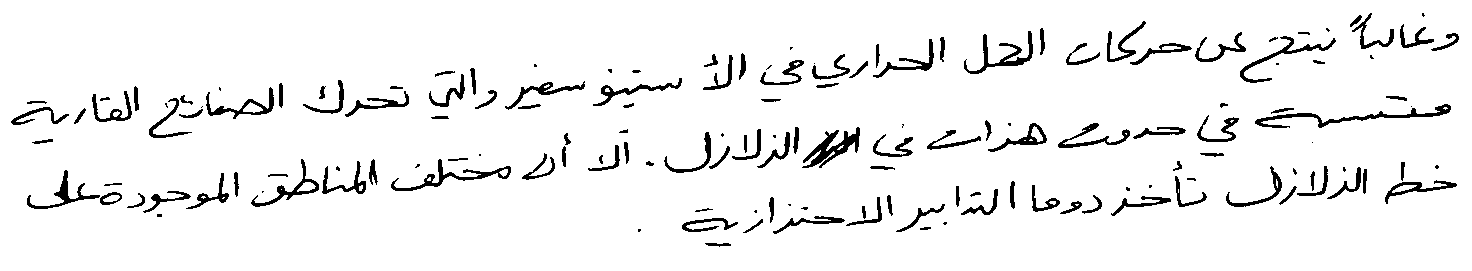 وغالباً ينتج عن حركات الحمل الحراري في الأستينوسفير والتي تحرك الصفائح القارية
متسببة في حدوث هزات في الزلازل. الا أن مختلف المناطق الموجودة على
خط الزلازل تأخذ دوما التدابير الاحترازية .